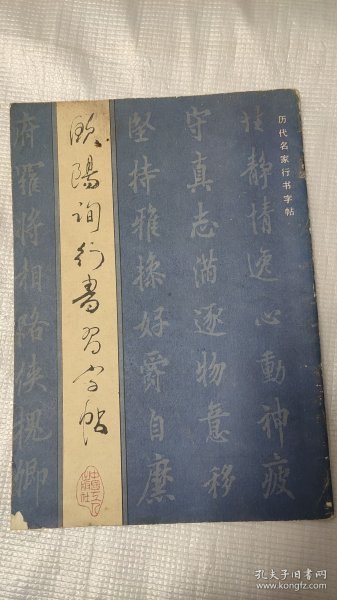 历代名家行书字帖
性靜情逸心動神疲
守真志滿逐物意移
堅持雅操好爵自縻
歐陽詢行書習字帖
府羅將相路俠槐卿
孔夫子旧书网